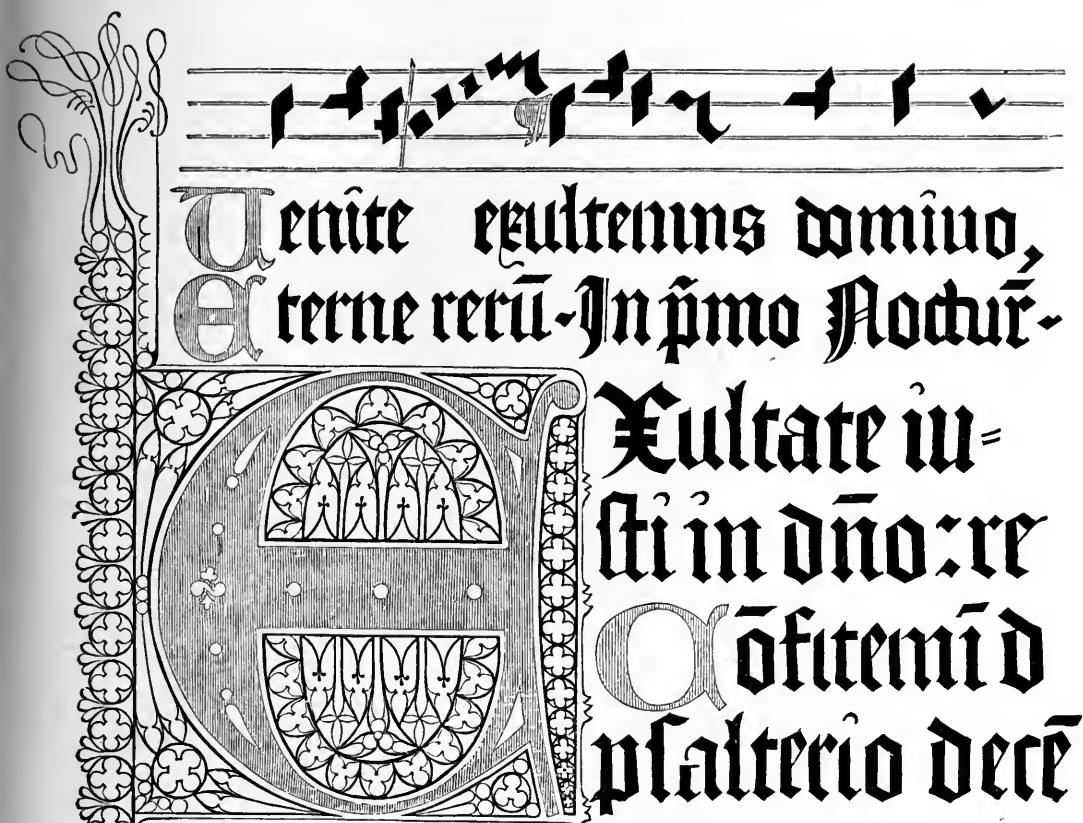 Uenite exultemus domino,
Eterne rerū-In p̄mo Noctur̄-
EXultate iu=
ſti in dn̄o: re
Cōfitemī d
pſalterio decē